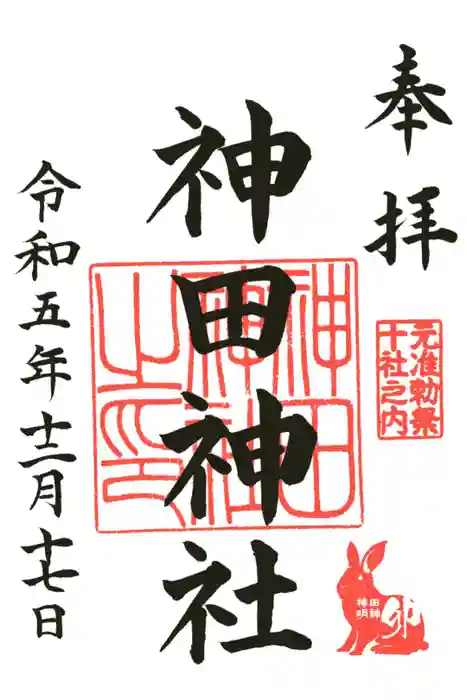 奉拝
元准勅祭
十社之内
神田
神明
卯
神田神社
神田
神社
之印
令和五年十二月十七日